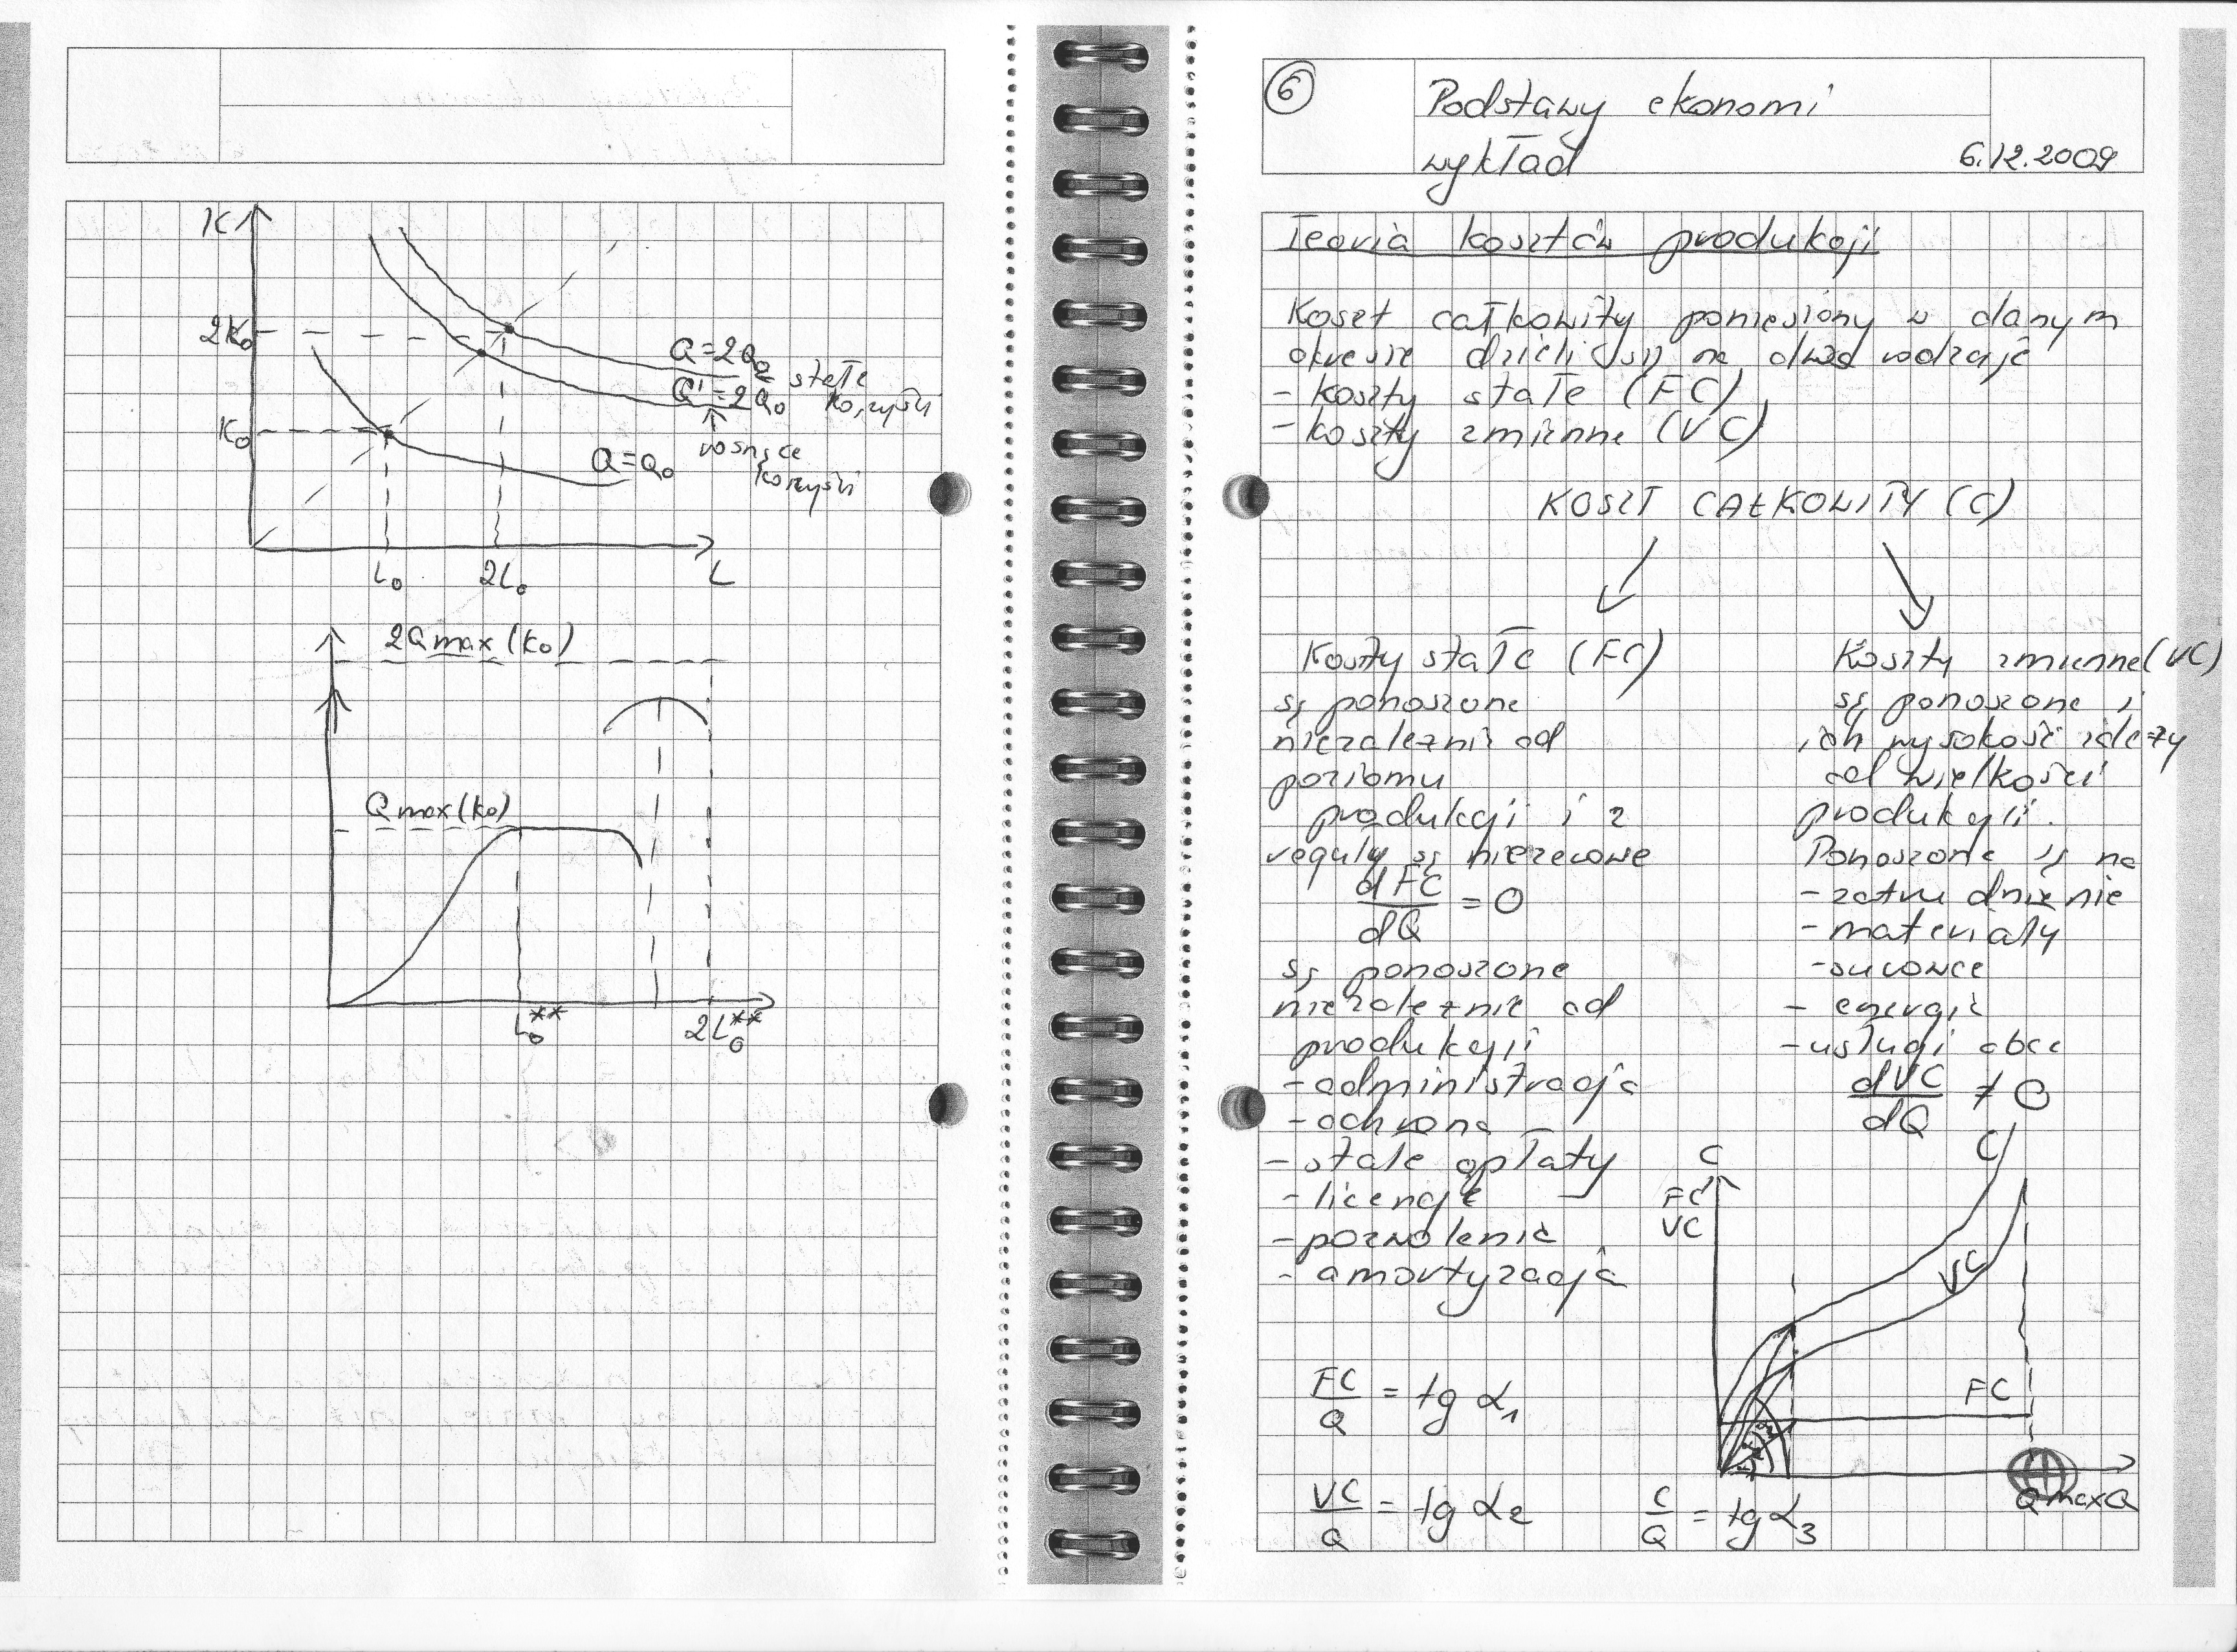 K
2K₀
Q=2Q₀
stałe
Q'=2Q₀
korzyści
K₀
rosnące
Q=Q₀
korzyści
L₀
2L₀
L
2Qmax(K₀)
Qmax(K₀)
L₀**
2L₀**
6
Podstawy ekonomi
wykład
6.12.2009
Teoria kosztów produkcji
Koszt całkowity poniesiony w danym
okresie dzieli się na dwa rodzaje
- koszty stałe (FC)
- koszty zmienne (VC)
KOSZT CAŁKOWITY (C)
Koszty stałe (FC)
są ponoszone
niezależnie od
poziomu
produkcji i z
reguły są nierzeczowe
dFC/dQ = 0
są ponoszone
niezależnie od
produkcji
- administracja
- ochrona
- stałe opłaty
- licencje
- pozwolenia
- amortyzacja
Koszty zmienne (VC)
są ponoszone i
ich wysokość zależy
od wielkości
produkcji.
Ponoszone są na
- zatrudnienie
- materiały
- surowce
- energię
- usługi obce
dVC/dQ ≠ 0
C
FC
VC
C
VC
FC
Qmax
Q
FC/Q = tg α₁
VC/Q = tg α₂
C/Q = tg α₃